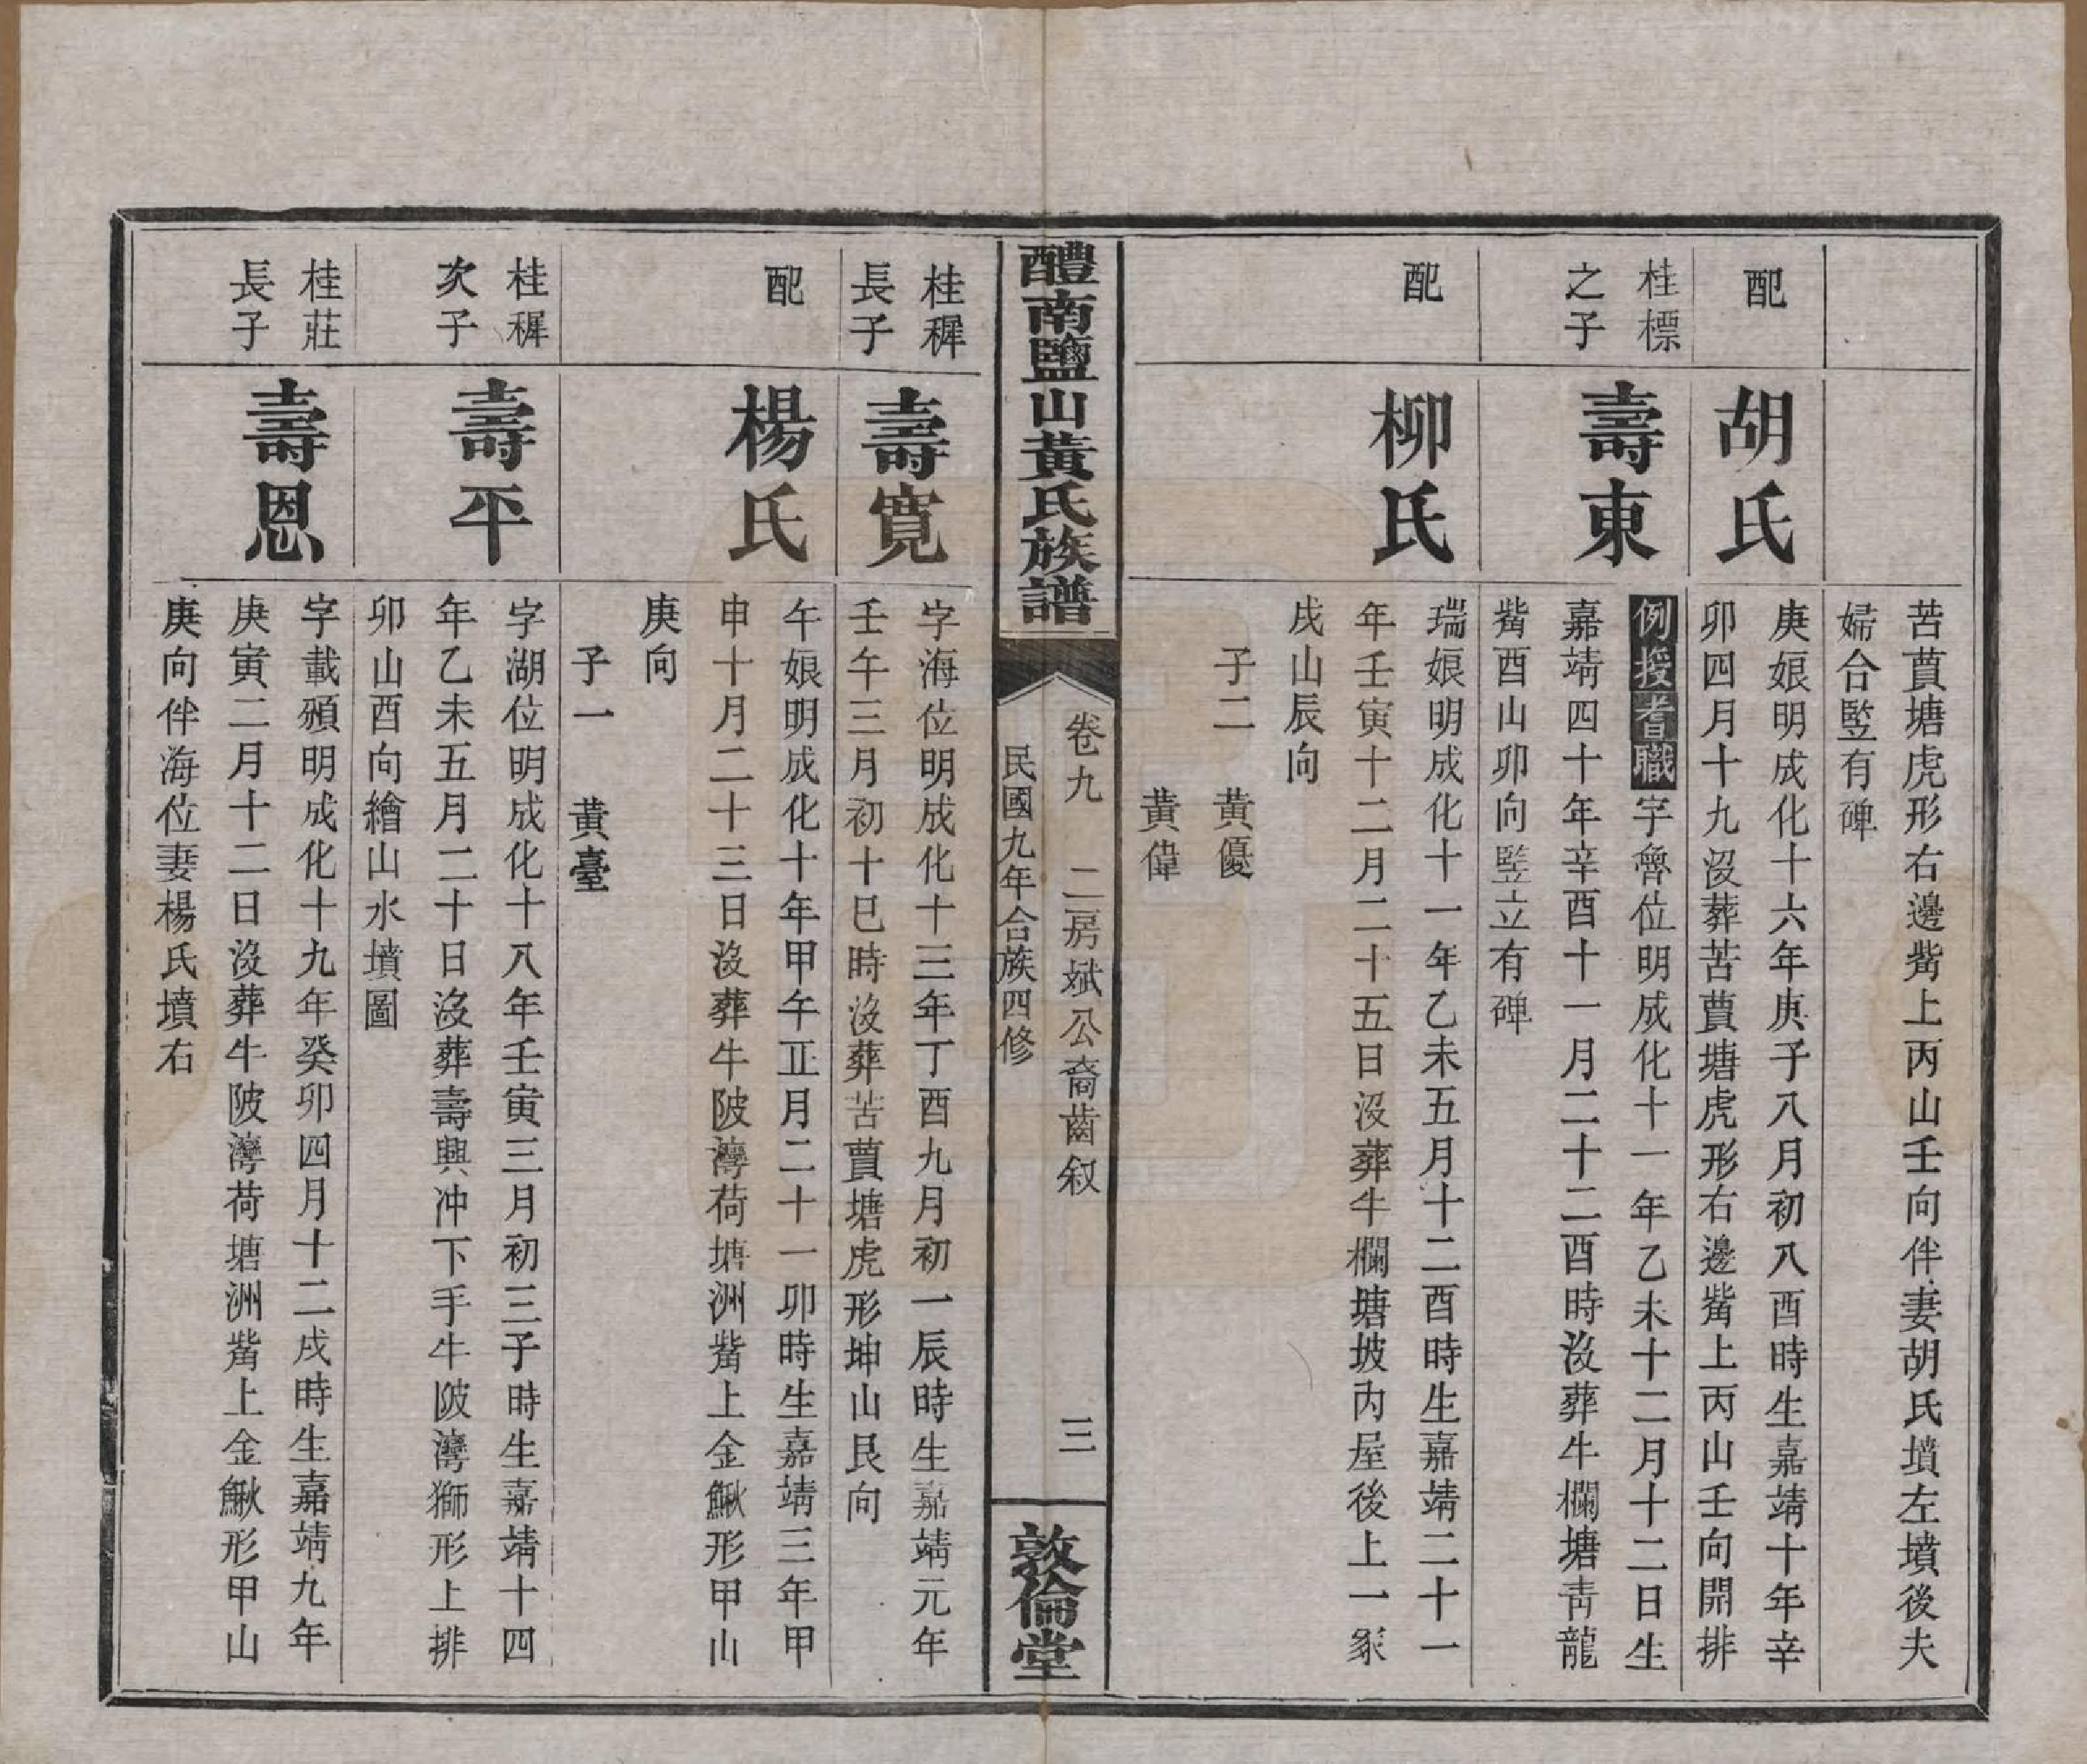 苦蕒塘虎形右邊觜上丙山壬向伴妻胡氏墳左墳後夫
婦合竪有碑
配
胡氏
庚娘明成化十六年庚子八月初八酉時生嘉靖十年辛
卯四月十九沒葬苦蕒塘虎形右邊觜上丙山壬向開排
桂標
之子
壽東
例授耆職字魯位明成化十一年乙未十二月十二日生
嘉靖四十年辛酉十一月二十二酉時沒葬牛欄塘青龍
觜酉山卯向竪立有碑
配
柳氏
瑞娘明成化十一年乙未五月十二酉時生嘉靖二十一
年壬寅十二月二十五日沒葬牛欄塘坡內屋後上一冢
戌山辰向
子二 黃優
黃偉
醴南鹽山黃氏族譜
卷九 二房斌公裔齒叙 三
民國九年合族四修
敦倫堂
桂穉
長子
壽寬
字海位明成化十三年丁酉九月初一辰時生嘉靖元年
壬午三月初十巳時沒葬苦蕒塘虎形坤山艮向
配
楊氏
午娘明成化十年甲午正月二十一卯時生嘉靖三年甲
申十月二十三日沒葬牛陂灣荷塘洲觜上金鰍形甲山
庚向
子一 黃臺
桂穉
次子
壽平
字湖位明成化十八年壬寅三月初三子時生嘉靖十四
年乙未五月二十日沒葬壽興冲下手牛陂灣獅形上排
卯山酉向繪山水墳圖
桂莊
長子
壽恩
字載頒明成化十九年癸卯四月十二戌時生嘉靖九年
庚寅二月十二日沒葬牛陂灣荷塘洲觜上金鰍形甲山
庚向伴海位妻楊氏墳右